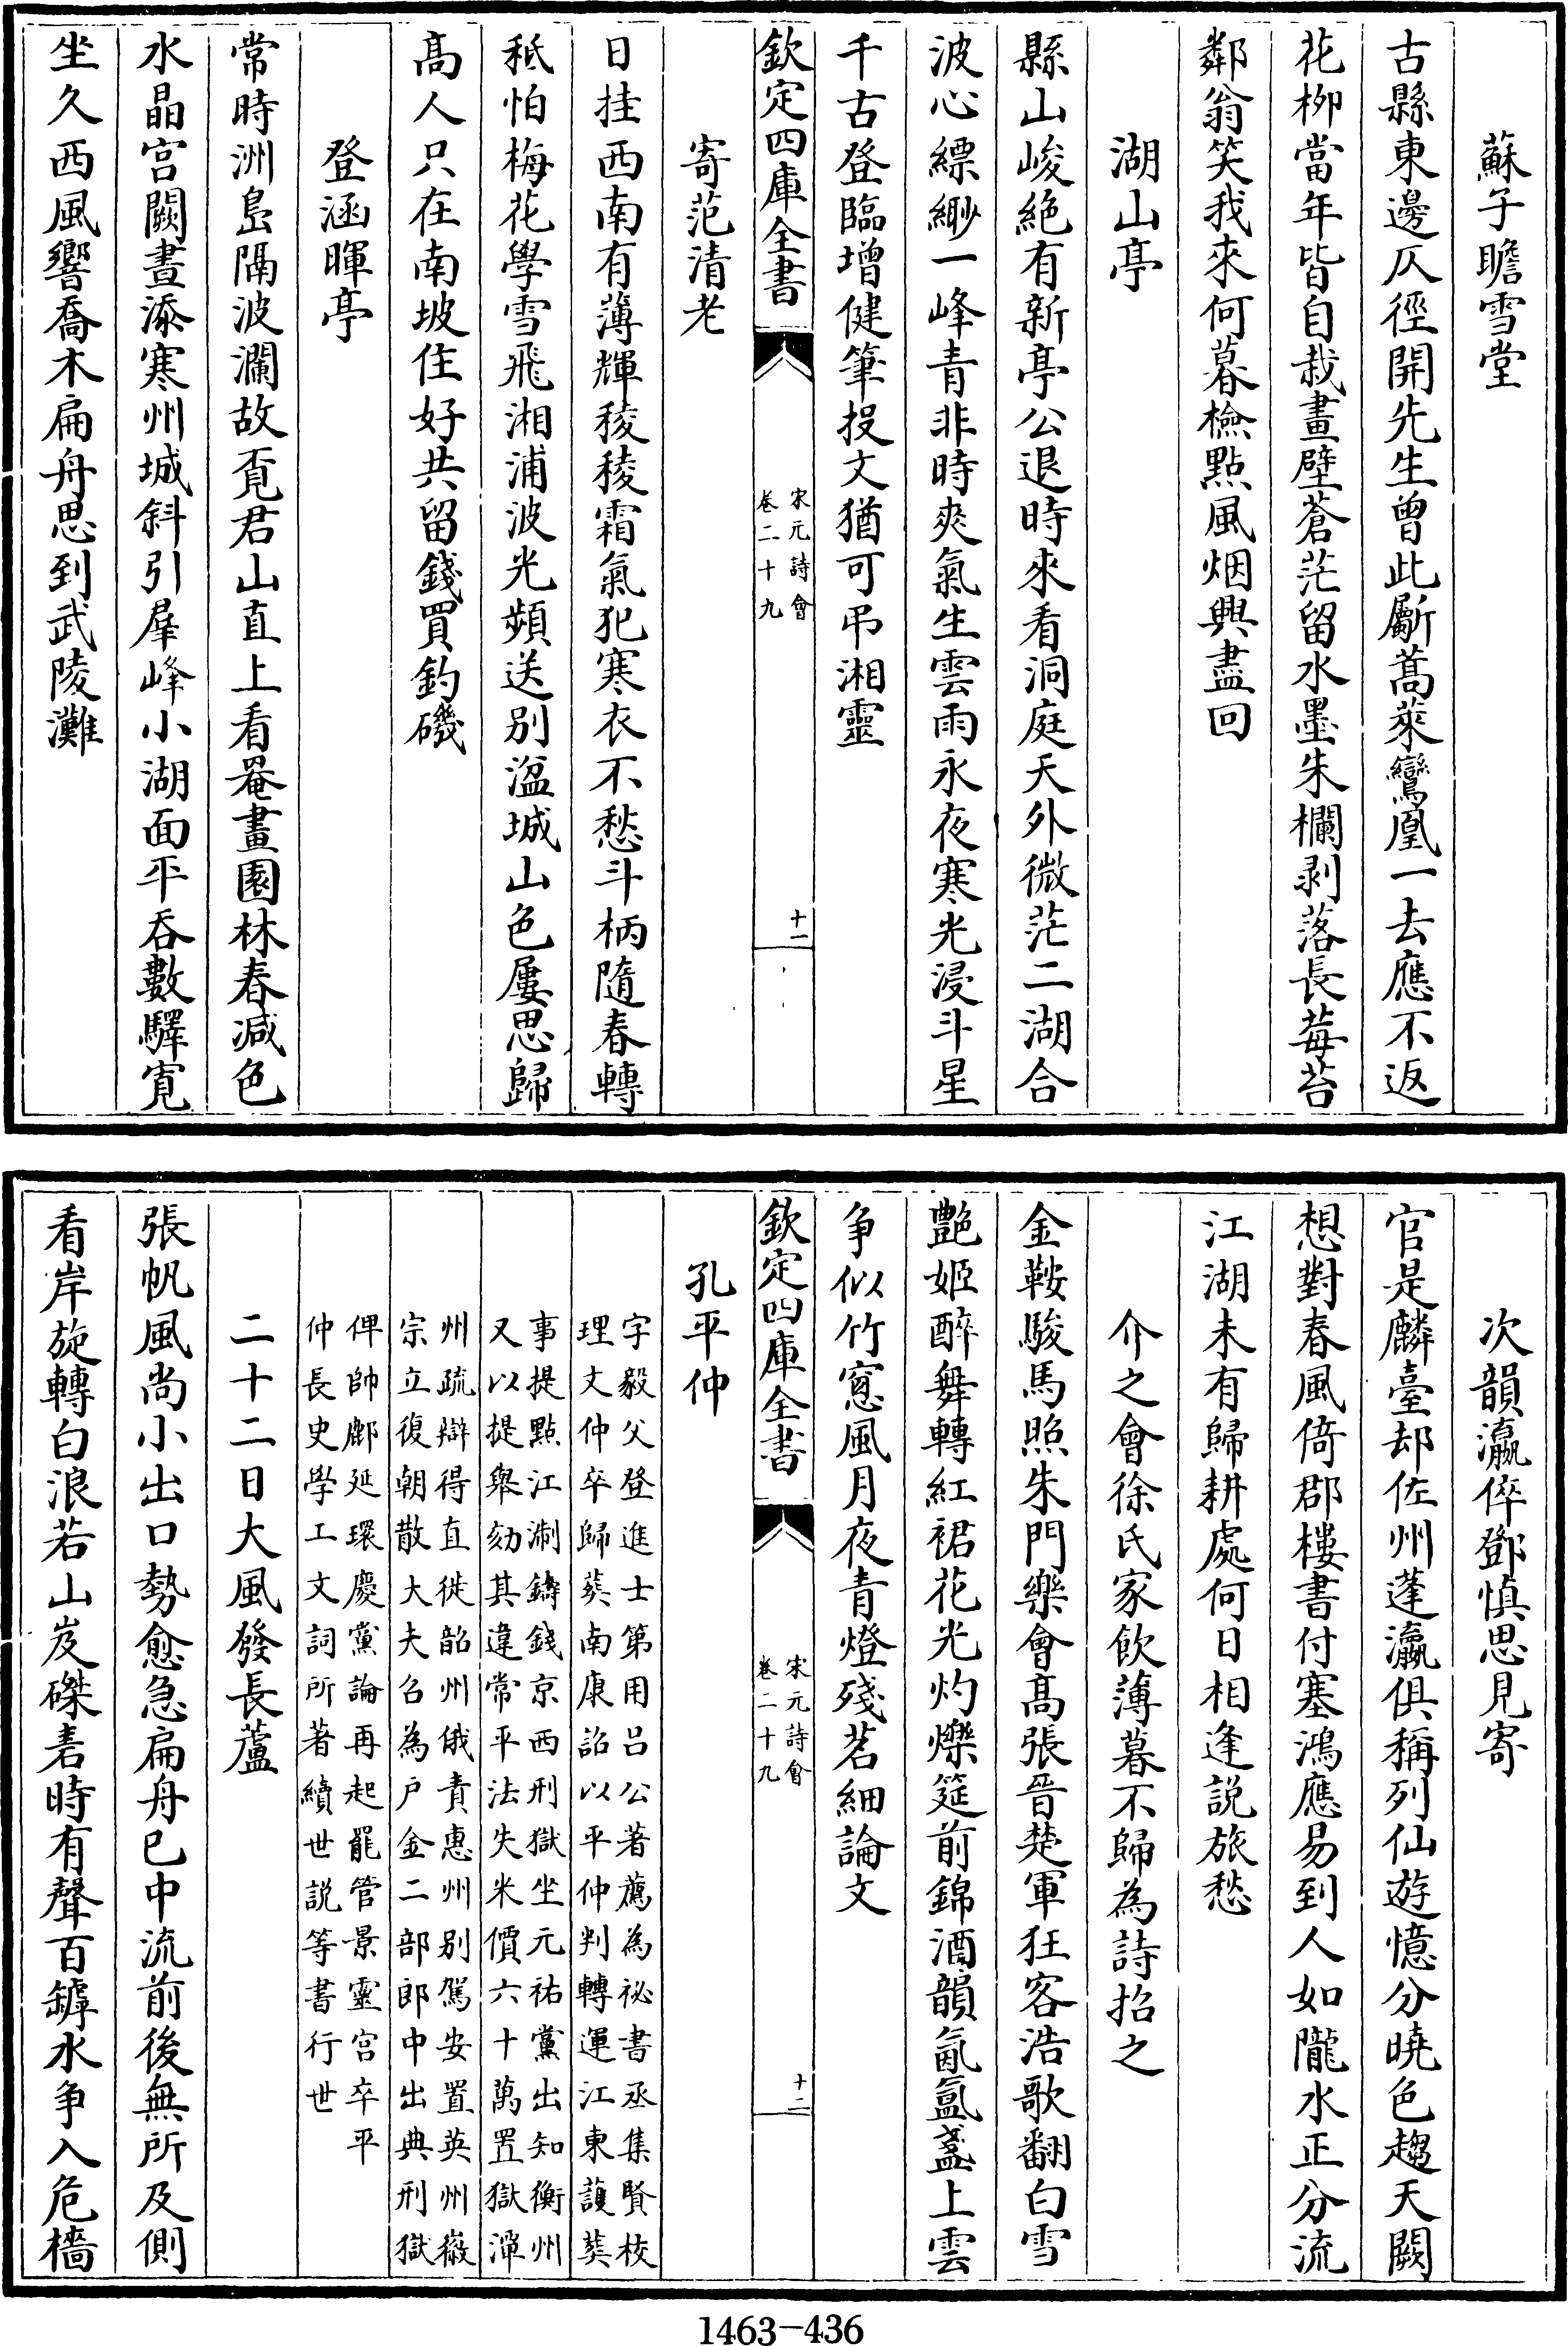 蘇子瞻雪堂
古縣東邊仄徑開先生曾此斸蒿萊鸞凰一去應不返
花栁當年皆自栽畫壁蒼茫留水墨朱欄剥落長莓苔
鄰翁笑我來何暮檢點風烟興盡回
湖山亭
縣山峻絶有新亭公退時來看洞庭天外微茫二湖合
波心縹緲一峰青非時爽氣生雲雨永夜寒光浸斗星
千古登臨增健筆投文猶可弔湘靈
欽定四庫全書
宋元詩會
卷二十九
十一
寄范清老
日挂西南有薄輝稜稜霜氣犯寒衣不愁斗柄隨春轉
秪怕梅花學雪飛湘浦波光頻送别湓城山色屢思歸
髙人只在南坡住好共留錢買釣磯
登涵暉亭
常時洲島隔波瀾故覔君山直上看罨畫園林春減色
水晶宫闕晝添寒州城斜引羣峰小湖面平吞數驛寛
坐久西風響喬木扁舟思到武陵灘
次韻瀛倅鄧慎思見寄
官是麟臺却佐州蓬瀛俱稱列仙遊憶分曉色趨天闕
想對春風倚郡樓書付塞鴻應易到人如隴水正分流
江湖未有歸耕處何日相逢説旅愁
介之會徐氏家飲薄暮不歸為詩招之
金鞍駿馬照朱門樂會髙張晉楚軍狂客浩歌翻白雪
艷姬醉舞轉紅裙花光灼爍筵前錦酒韻氤氲盞上雲
争似竹窓風月夜青燈殘茗細論文
欽定四庫全書
宋元詩會
卷二十九
十二
孔平仲
字毅父登進士第用吕公著薦為祕書丞集賢校
理文仲卒歸葬南康詔以平仲判轉運江東護葬
事提點江淛鑄錢京西刑獄坐元祐黨出知衡州
又以提舉劾其違常平法失米價六十萬置獄潭
州疏辯得直徙韶州俄責惠州别駕安置英州徽
宗立復朝散大夫召為户金二部郎中出典刑獄
俾帥鄜延環慶黨論再起罷管景靈宫卒平
仲長史學工文詞所著續世説等書行世
二十二日大風發長蘆
張帆風尚小出口勢愈急扁舟已中流前後無所及側
看岸旋轉白浪若山岌磔砉時有聲百罅水争入危檣
1463-436